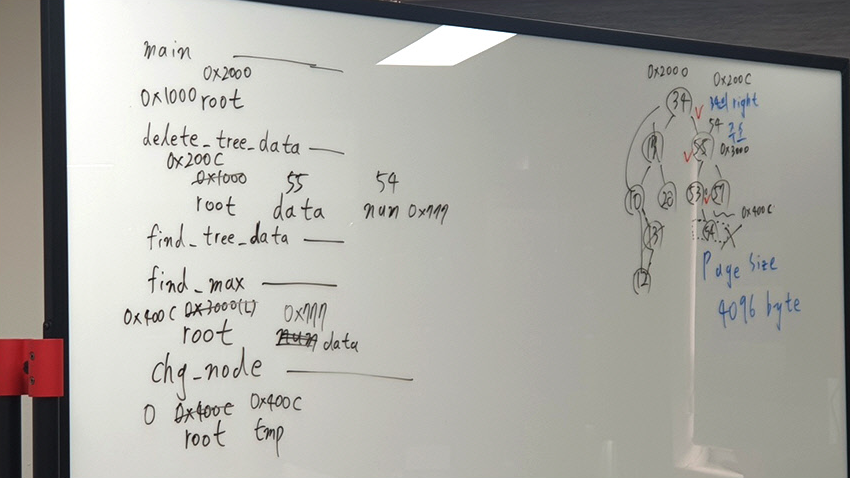 main
0x2000
0x1000 root
delete_tree_data
0x200C
0x1000 55 54
root data num 0x777
find_tree_data
find_max
0x400C 0x3000(L) 0x777
root num data
chg_node
0 0x400C 0x400C
root tmp
0x2000 0x200C
34 34의 right
54 주소
55 0x3000
10 20 53 57
0x400C
13 54
12
Page size
4096 byte